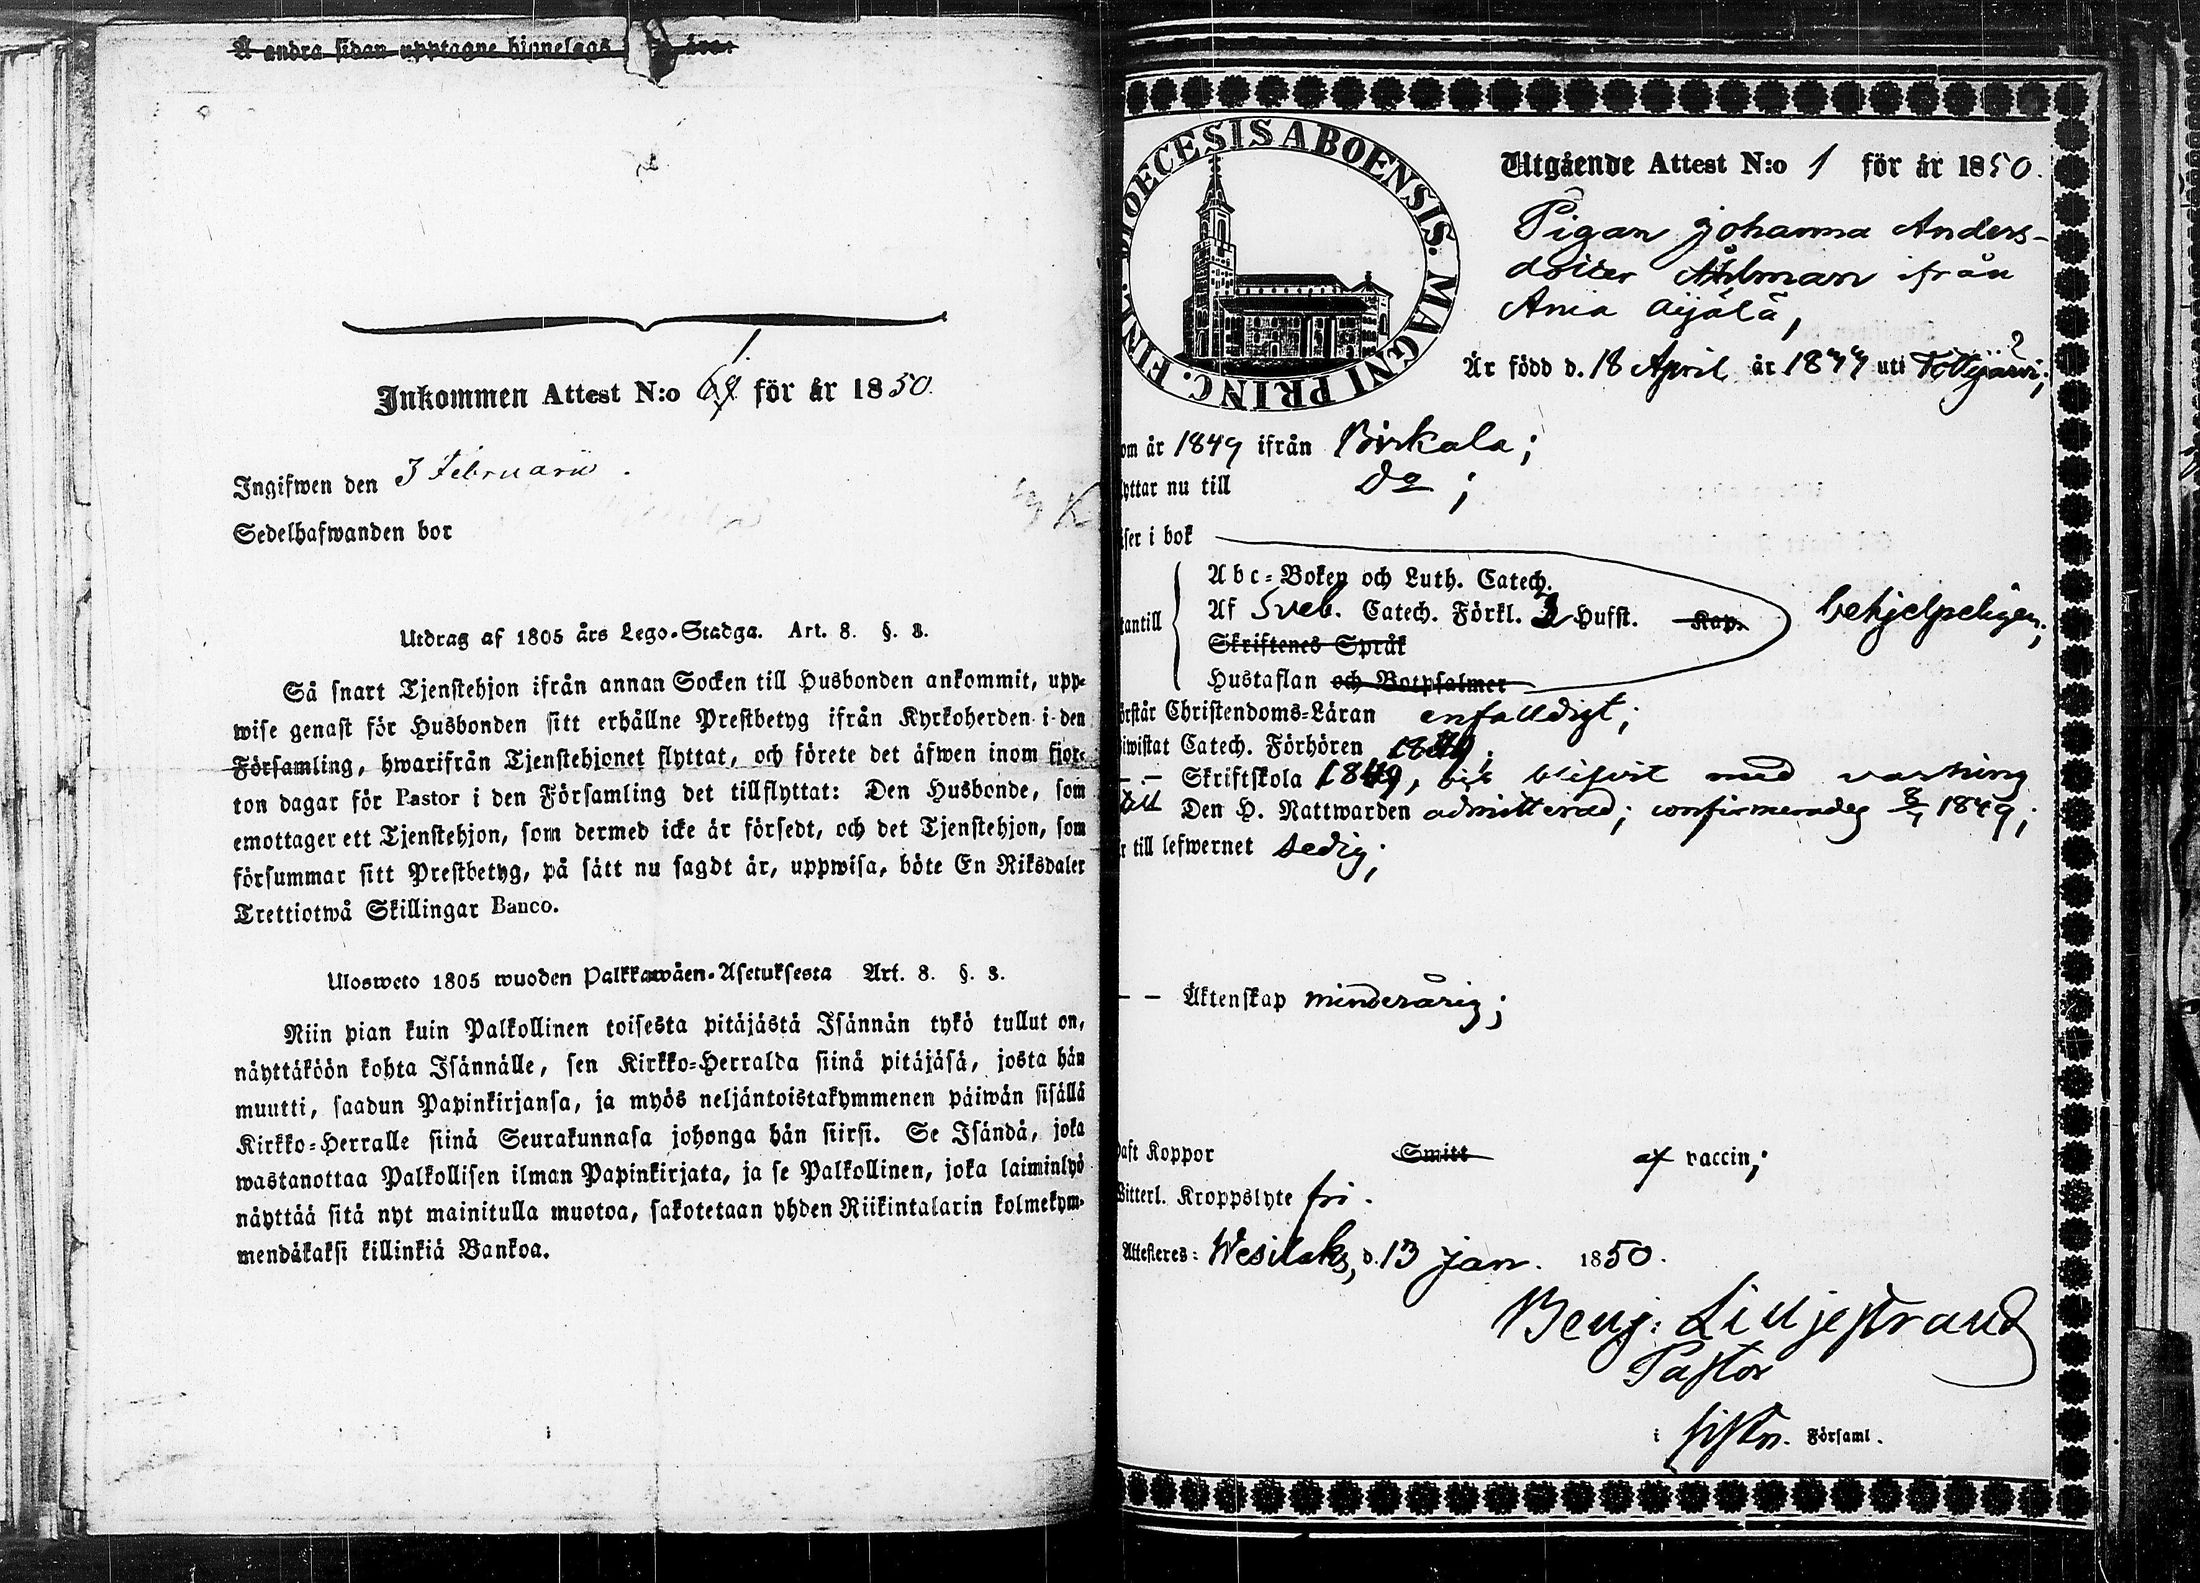 Å andra sidan upptagne hinnelsgs
Inkommen Attest N:o för år 1850.
1.
Ingifwen den 3 Februarii.
Sedelhafwanden bor
Utdrag af 1805 års Lego-Stadga. Art. 8. §. 3.
Så snart Tjenstehjon ifrån annan Socken till Husbonden ankommit, upp-
wise genast för Husbonden sitt erhållne Prestbetyg ifrån Kyrkoherden i den
Församling, hwarifrån Tjenstehjonet flyttat, och förete det äfwen inom fjor-
ton dagar för Pastor i den Församling det tillflyttat: Den Husbonde, som
emottager ett Tjenstehjon, som dermed icke är försedt, och det Tjenstehjon, som
försummar sitt Prestbetyg, på sätt nu sagdt är, uppwisa, böte En Riksdaler
Trettiotwå Skillingar Banco.
Ulosweto 1805 wuoden Palkkawäen-Asetuksesta Art. 8. §. 3.
Niin pian kuin Palkollinen toisesta pitäjästä Isännän tykö tullut on,
näyttäköön kohta Isännälle, sen Kirkko-Herralda siinä pitäjäsä, josta hän
muutti, saadun Papinkirjansa, ja myös neljäntoistakymmenen päiwän sisällä
Kirkko-Herralle siinä Seurakunnasa johonga hän siirsi. Se Isändä, joka
wastanottaa Palkollisen ilman Papinkirjata, ja se Palkollinen, joka laiminlyö
näyttää sitä nyt mainitulla muotoa, sakotetaan yhden Riikintalarin kolmekym-
mendäkaksi killinkiä Bankoa.
DIOECESIS ABOENSIS. MAGNI PRINC. FINL.
Utgående Attest N:o 1 för år 1850.
Pigan Johanna Anders-
dotter Åhlman ifrån
Ania Äijälä,
Är född d. 18 April år uti Tottijärvi;
om år 1849 ifrån Birkala;
yttar nu till Do;
äser i bok
Abc-Boken och Luth. Catech.
utantill Af Sveb. Catech. Förkl. 3 Hufst. Kap. behjelpeligen;
Skriftenes Språk
Hustaflan och Botpsalmer
örstår Christendoms-Läran enfalldigt;
iwistat Catech. Förhören 1849;
— — Skriftskola 1849, blifvit med varning
till Den H. Nattwarden admitterad; confirmerades 1849;
r till lefwernet sedig;
— — Äktenskap minderårig;
Haft Koppor Smitt af vaccin;
Witterl. Kroppslyte fri.
Attesteres: Wesilaks, d. 13 Jan. 1850.
Benj. Liljestrand
Pastor
i Församl.